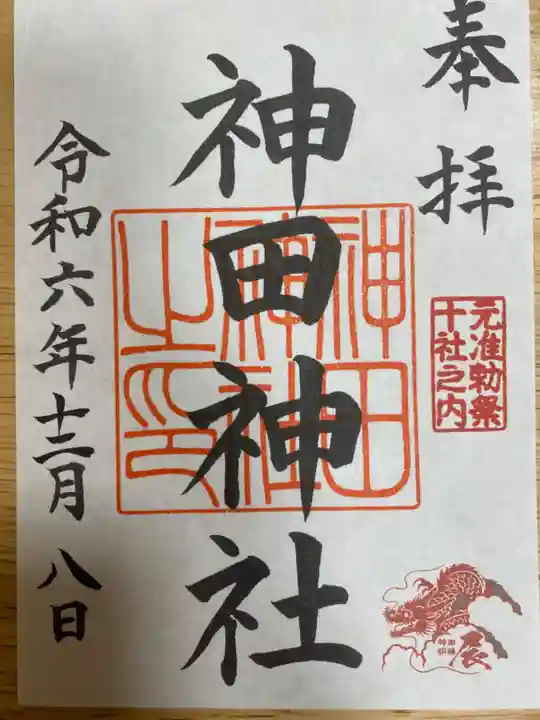 奉拝
元准勅祭
十社之内
神田神社
神田
神社
之印
令和六年十二月八日
辰